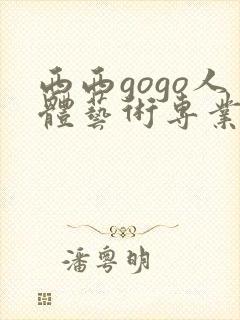 西西gogo人
體藝術專業
潘粵明